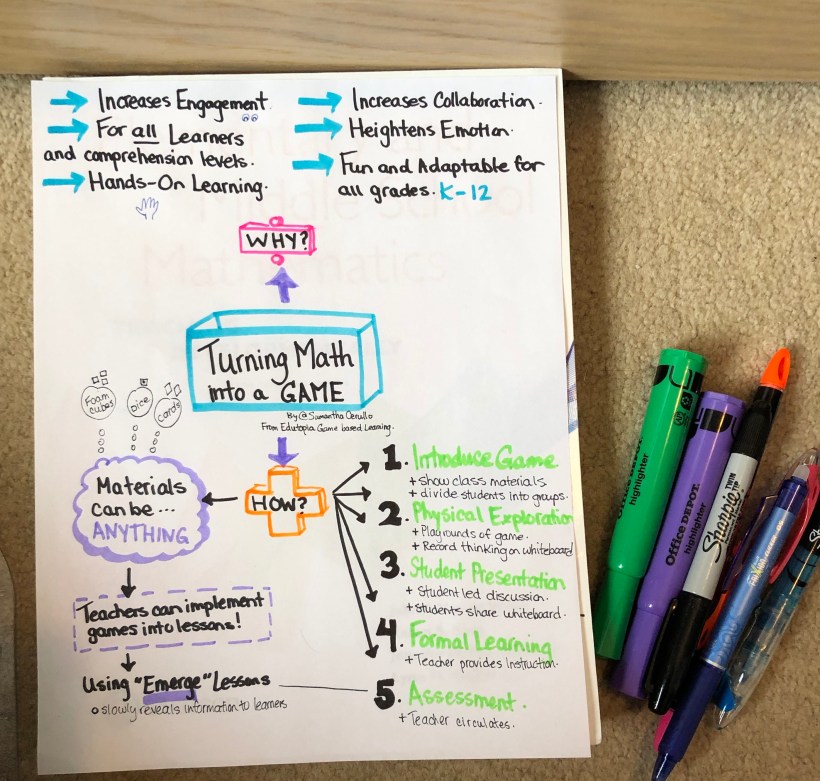 Increases Engagement.
For all Learners
and comprehension levels.
Hands-On Learning.
Increases Collaboration.
Heightens Emotion.
Fun and Adaptable for
all grades. K-12
WHY?
Turning Math
into a GAME
By @Samantha Cerullo
From Edutopia Game based Learning.
Foam
cubes
Dice
cards
Materials
can be...
ANYTHING
HOW?
Teachers can implement
games into lessons!
Using "Emerge" Lessons
slowly reveals information to learners
1. Introduce Game
+ show class materials
+ divide students into groups.
2. Physical Exploration
+ Play rounds of game.
+ Record thinking on whiteboard
3. Student Presentation
+ Student led discussion.
+ Students share whiteboard.
4. Formal Learning
+ Teacher provides instruction.
5. Assessment.
+ Teacher circulates.
Office DEPOT
highlighter
Office DEPOT
highlighter
Sharpie TWIN TIP